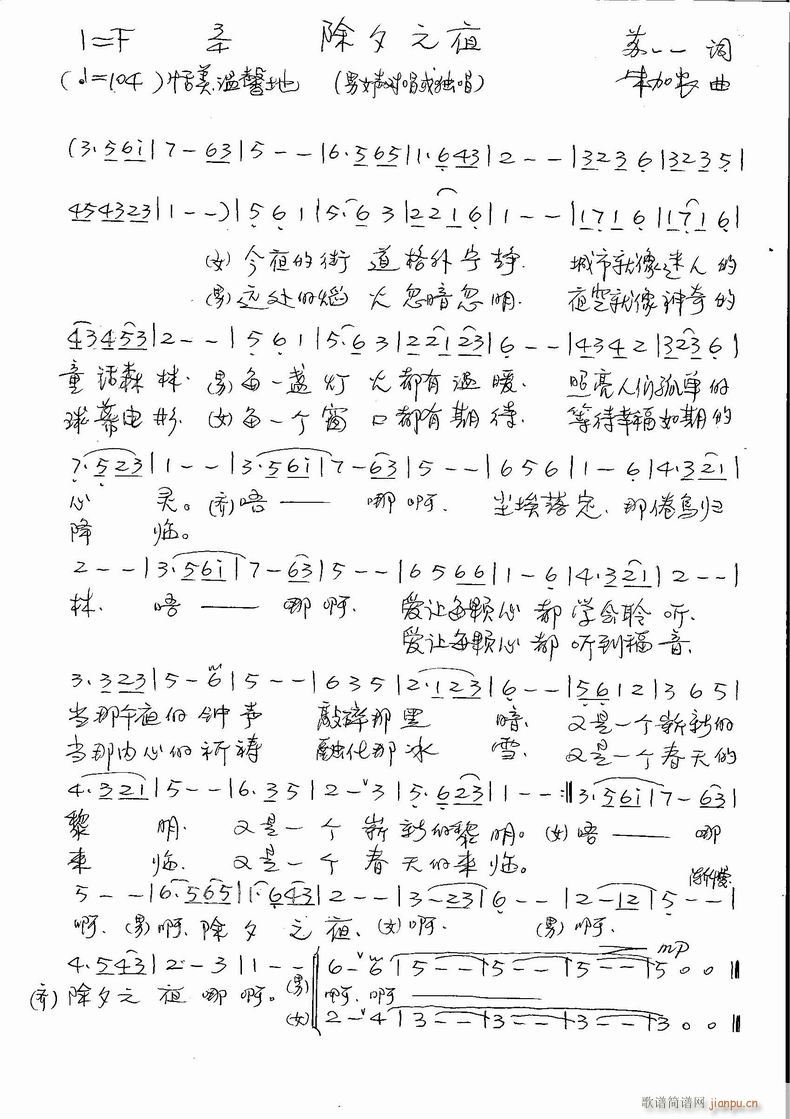 1=F 3/4 除夕之夜 苏一一 词
(♩=104) 恬美温馨地 (男女声对唱或独唱) 朱加农 曲
(3·56i|7-63|5--|6·565|1·643|2--|3236|3235|
454323|1--)|561|5·63|2216|1--|1716|1716|
(女)今夜的街 道格外宁静. 城市就像迷人的
(男)远处的焰 火忽暗忽明. 夜空就像神奇的
43453|2--|561|5·63|22123|6--|4342|3236|
童话森林. (男)每一盏灯 火都有温暖. 照亮人们孤单的
球幕电影. (女)每一个窗 口都有期待. 等待幸福如期的
7·523|1--|3·56i|7-63|5--|656|1-6|4·321|
心 灵。(齐)唔—— 哪啊. 尘埃落定.那倦鸟归
降 临。
2--|3·56i|7-63|5--|6566|1-6|4·321|2--|
林. 唔—— 哪啊. 爱让每颗心都 学会聆听.
爱让每颗心都 听到福音.
3·323|5-6|5--|635|2·123|6--|5612|365|
当那午夜的钟声 敲碎那黑 暗、 又是一个崭新的
当那内心的祈祷 融化那冰 雪、 又是一个春天的
4·321|5--|6·35|2-3|5·623|1--:‖3·56i|7-63|
黎 明. 又是一个 崭新的黎明。(女)唔—— 哪
来 临. 又是一个 春天的来临。
渐慢
5--|6·565|1·643|2--|3-23|6--|2-12|5--|
啊. (男)啊.除夕之夜、(女)啊. (男)啊.
mp
4·543|2-3|1--|6-6|5--|5--|5--|500‖
(齐)除夕之夜哪啊。(男) 啊.啊————
(女) 2-4|3--|3--|3--|300‖
歌谱简谱网 jianpu.cn